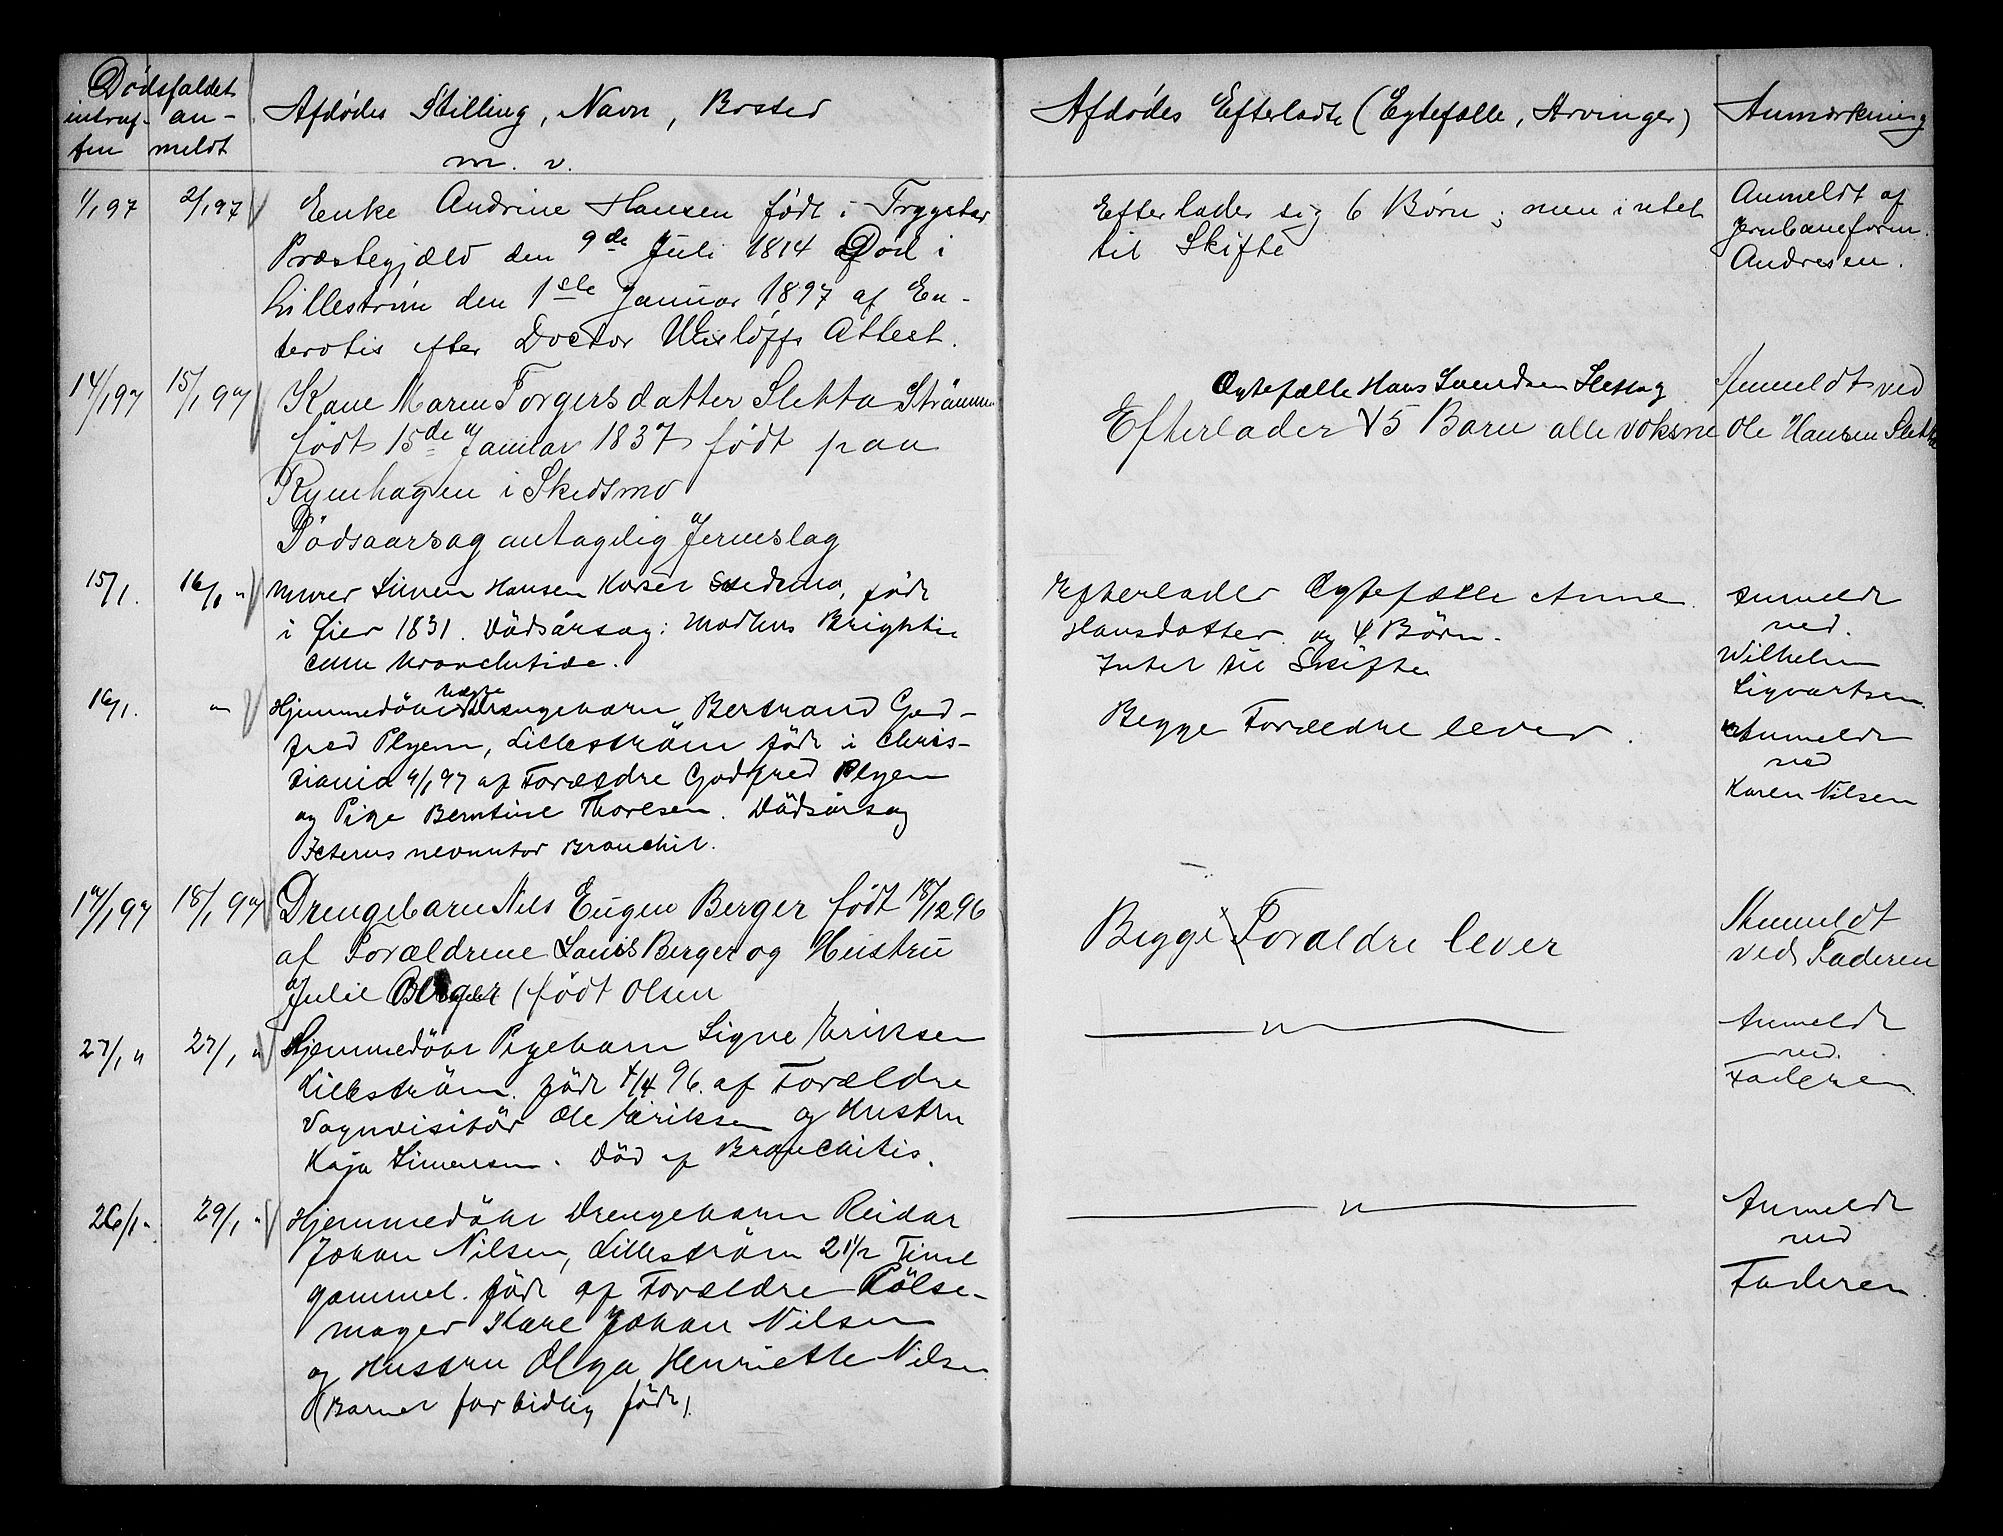 Dødsfaldet
intruf- an-
fen meldt
Afdødes Stilling, Navn, Bosted
m. v.
Afdødes Efterladte (Egtefælle, Arvinger)
Anmærkning
1/1 97 2/1 97 Enke Andrine Hansen født i Trygstad
Præstegjæld den 9de Juli 1814 Død i
Lillestrøm den 1ste Januar 1897 af En-
terotis efter Doctor Attest.
Efterlader sig 6 Børn; men intet
til Skifte
Anmeldt af
Jernbaneform.
Andresen.
14/1 97 15/1 97 Kone Maren Torgersdatter Sletta Strömmen
født 15de Januar 1837 født paa
Rymhagen i Skedsmo
Dödsaarsag antagelig Jerneslag
Egtefælle Hans Svendsen Slettag
Efterlader 5 Barn alle voksne
Anmeldt ved
Ole Hansen Sletta
15/1. 16/1 " Murer Simen Hansen Korsei Skedsmo, född
i Øier 1831. Dödsårsag: Modhus Brightii
cum
Efterlader Egtefælle Anne
Hansdatter og 4 Börn.
Intet til Skifte
Anmeldt
ved.
Wilhelm
Sigvartsen.
16/1. " Hjemmedöbt uægte Drengebarn Bertrand God-
fred Plyem, Lilleström födt i Chris-
tiania 9/1 97 af Forældre Godfred Plyem
og Pige Berntine Thoresen. Dödsårsag
Icterus neonator Bronchit.
Begge Forældre lever.
Anmeldt
ved
Karen Nilsen
17/1 97 18/1 97 Drengebarn Nils Eugen Berger født 18/12 96
af Forældrene Louis Berger og Hustru
Julie Berger (født Olsen
Begge Forældre lever
Anmeldt
ved Faderen
27/1 " 27/1 " Hjemmedöbt Pigebarn Signe Eriksen
Lilleström. födt 4/4 96. af Forældre
Vognvisitör Ole Eriksen og Hustru
Kaja Simensen. Död af Bronchitis.
— " —
Anmeldt
ved.
Faderen
26/1 " 29/1 " Hjemmedöbt Drengebarn Reidar
Johan Nilsen, Lilleström 2 1/2 Time
gammel. födt af Forældre Pölse-
mager Kare Johan Nilsen
og Hustru Olga Henriette Nilsen
(Barnet for tidlig födt).
— " —
Anmeldt
ved
Faderen